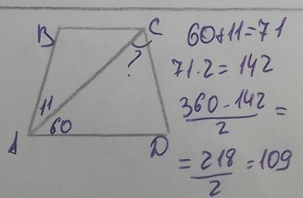 B
C
?
11
60
A
D
60+11=71
71·2=142
360-142
2
=
=
218
2
=109